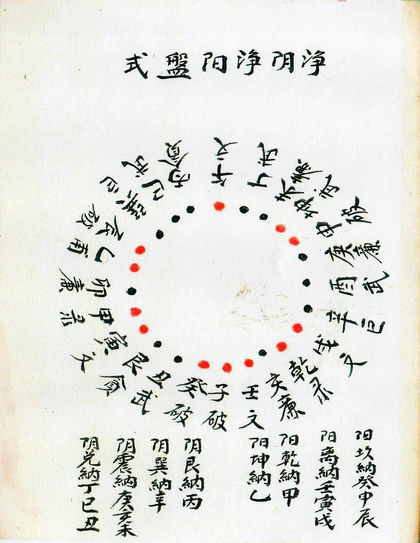 淨阴淨阳盤式
午文
丁武
申破
庚廉
酉武
辛巨
戌文
乾录
亥廉
壬文
子破
癸破
丑武
艮貪
寅文
甲录
卯廉
乙
辰破
巽巨
巳武
丙貪
阳坎納癸申辰
阳离納壬寅戌
阳乾納甲
阳坤納乙
阴艮納丙
阴巽納辛
阴震納庚亥未
阴兑納丁巳丑